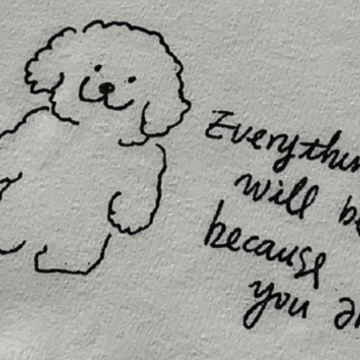 Everythin
will be
because
you ar